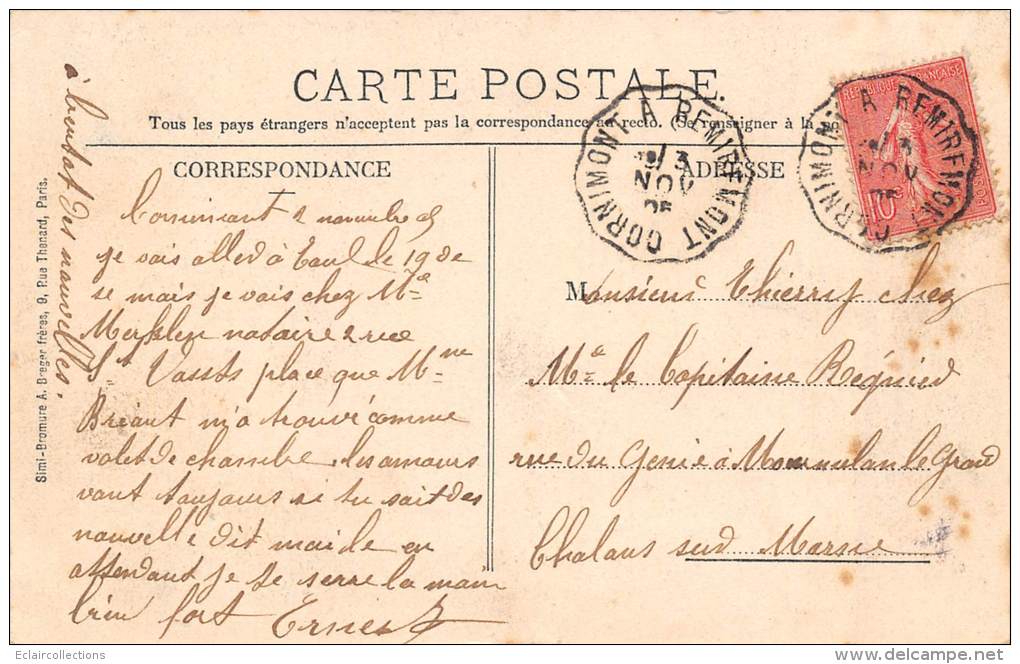 CARTE POSTALE
Tous les pays étrangers n'acceptent pas la correspondance au recto. (Se renseigner à la
CORRESPONDANCE
ADRESSE
CORNIMONT A REMIREMONT
3
NOV
05
CORNIMONT A REMIREMONT
3
NOV
05
REPUBLIQUE FRANÇAISE
10
POSTES
Cornimont 2 novembre 05
je vais aller à Toul le 19 de
se mais je vais chez Me
Merklen notaire 2 rue
St Vassts place que Mme
Briant m'a trouvé comme
valet de chambre, les amours
vont toujours si tu sait des
nouvelle dit mai de en
attendant je te serre la main
bien fort Ernest
à bientot des nouvelles.
Monsieur Thierry chez
Me le Capitaine Régnier
rue du Genie à le Grand
Chalons sur Marne
Simi-Bromure A. Breger frères, 9, Rue Thenard, Paris.
Eclaircollections
delcampe.net